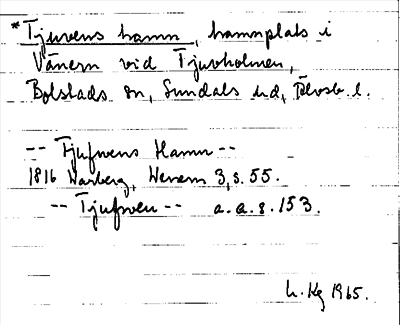 *Tjuvens hamn, hamnplats i
Vänern vid Tjuvholmen,
Bolstads sn, Sundals hd, Älvsb. l.
-- Tjufwens Hamn --
1816 Warberg, Wenern 3, s. 55.
-- Tjufwen -- a.a. s. 153.
Kg 1965.